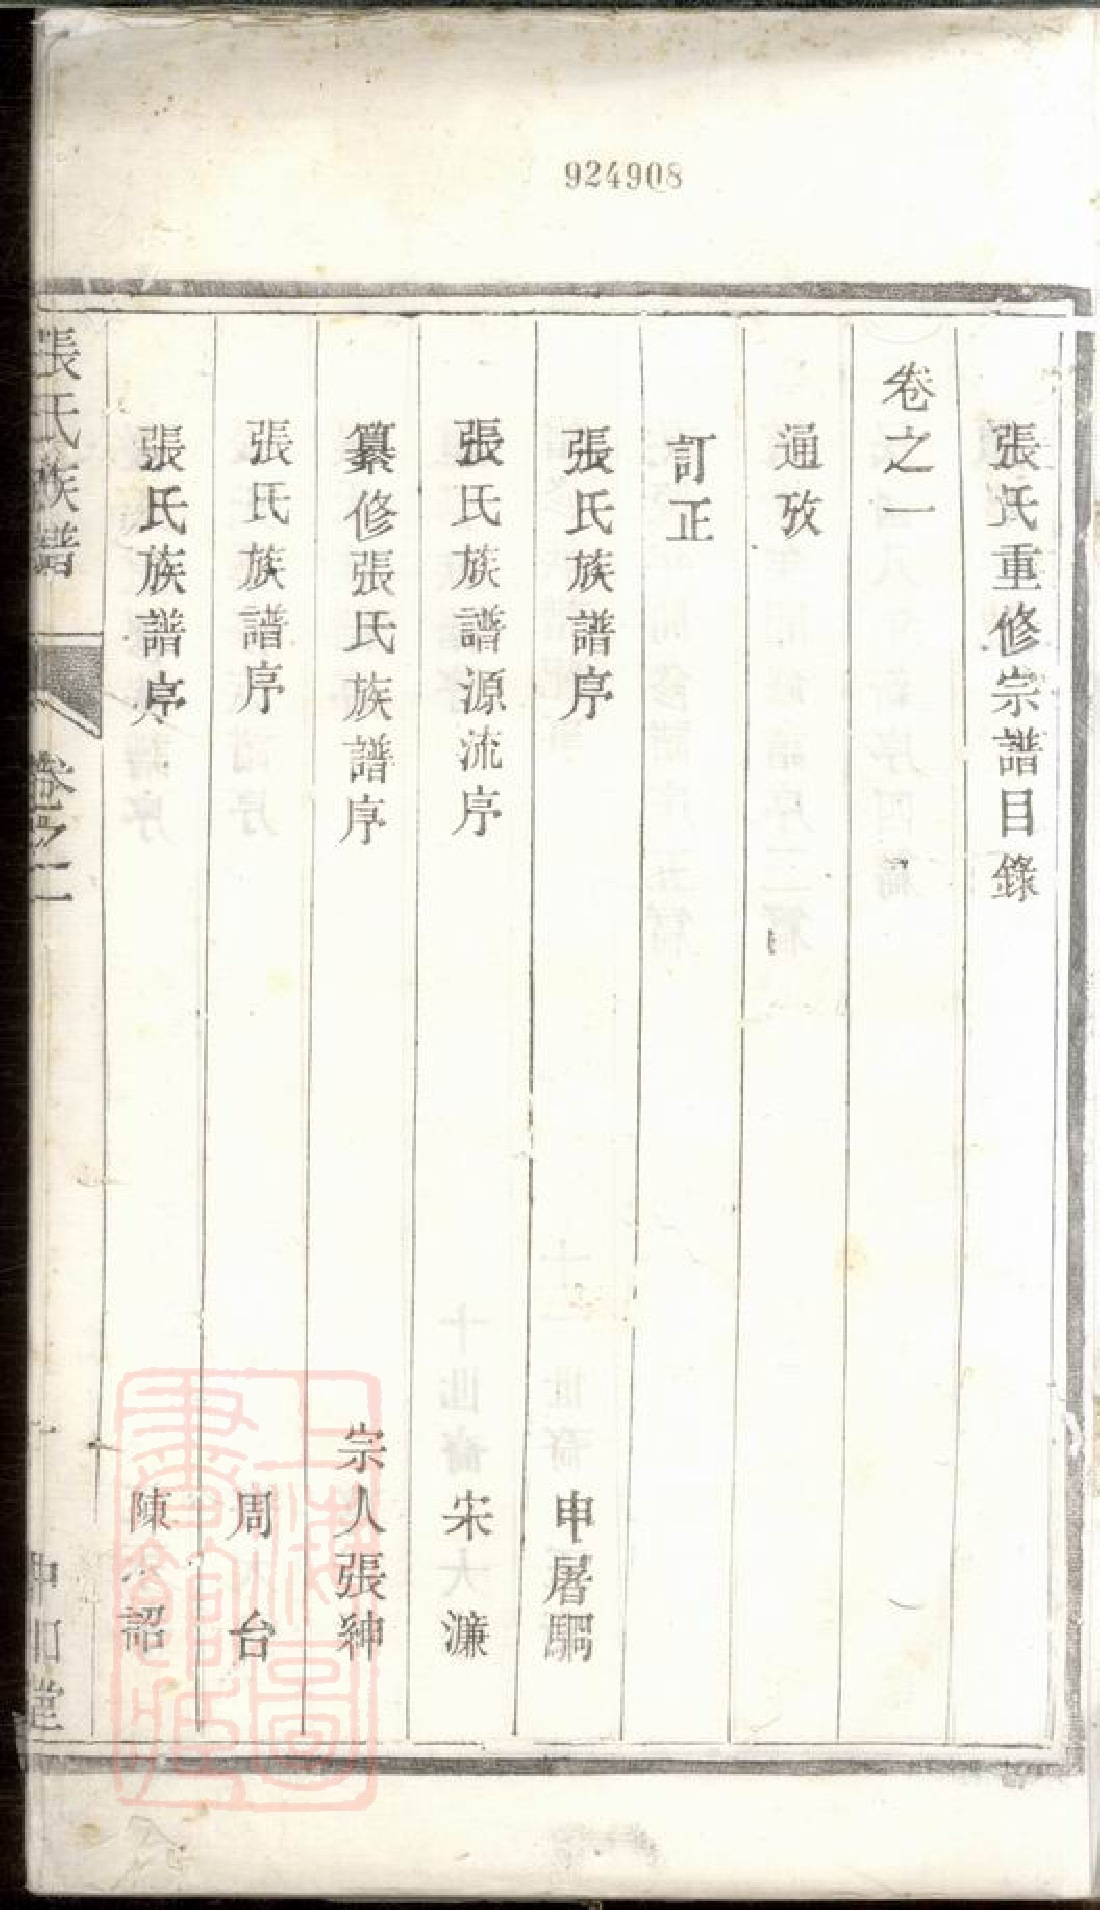 924908
張氏重修宗譜目錄
卷之一
通攷
訂正
張氏族譜序 申屠駉
張氏族譜源流序 宋濂
纂修張氏族譜序 宗人張紳
張氏族譜序 周台
張氏族譜序 陳 詔
張氏族譜
卷之
上海圖書館藏